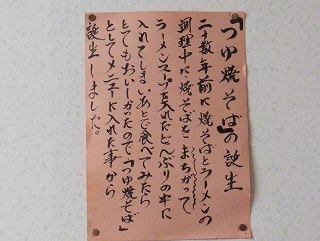 「つゆ焼そば」の誕生
二十数年前に焼そばとラーメンの
調理中に焼そばをまちがって
ラーメンスープを入れたどんぶりの中に
入れてしまいあとで食べてみたら
とてもおいしかったので「つゆ焼そば」
としてメニューに入れた事から
誕生しました。